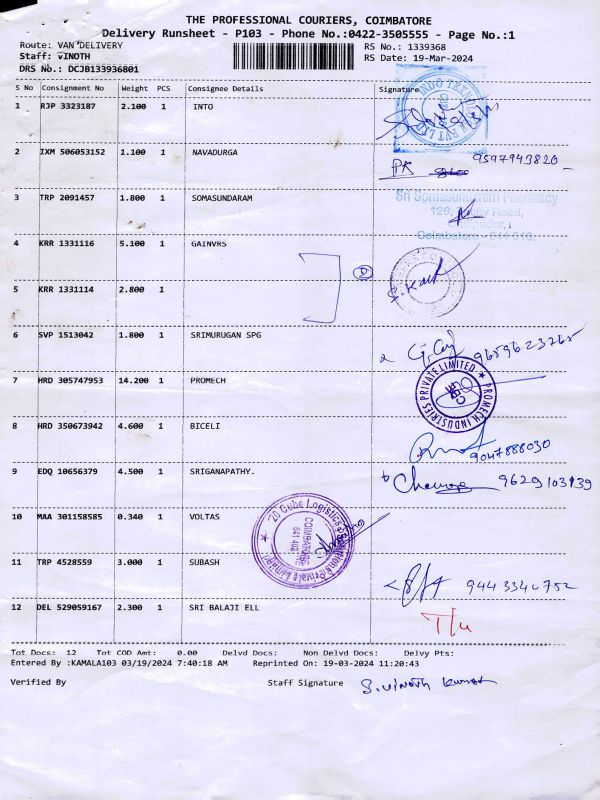 THE PROFESSIONAL COURIERS, COIMBATORE
Delivery Runsheet - P103 - Phone No.:0422-3505555 - Page No.:1
Route: VAN DELIVERY RS No.: 1339368
Staff: VINOTH RS Date: 19-Mar-2024
DRS No.: DCJB133936801
S No Consignment No Weight PCS Consignee Details Signature
1 RJP 3323187 2.100 1 INTO
2 IXM 506053152 1.100 1 NAVADURGA
PK 9597943820
3 TRP 2091457 1.800 1 SOMASUNDARAM
Sri Somasundaram Pharmacy
Road,
Coimbatore
4 KRR 1331116 5.100 1 GAINVRS
5 KRR 1331114 2.800 1
6 SVP 1513042 1.800 1 SRIMURUGAN SPG
9659623265
7 HRD 305747953 14.200 1 PROMECH
PROMECH INDUSTRIES PRIVATE LIMITED
8 HRD 350673942 4.600 1 BICELI
9047888030
9 EDQ 10656379 4.500 1 SRIGANAPATHY.
10 MAA 301158585 0.340 1 VOLTAS
20 Cube Logistics Solutions Private Limited
COIMBATORE
11 TRP 4528559 3.000 1 SUBASH
9443340752
12 DEL 529059167 2.300 1 SRI BALAJI ELL
Tot Docs: 12 Tot COD Amt: 0.00 Delvd Docs: Non Delvd Docs: Delvy Pts:
Entered By :KAMALA103 03/19/2024 7:40:18 AM Reprinted On: 19-03-2024 11:20:43
Verified By Staff Signature S.Vinoth kumar